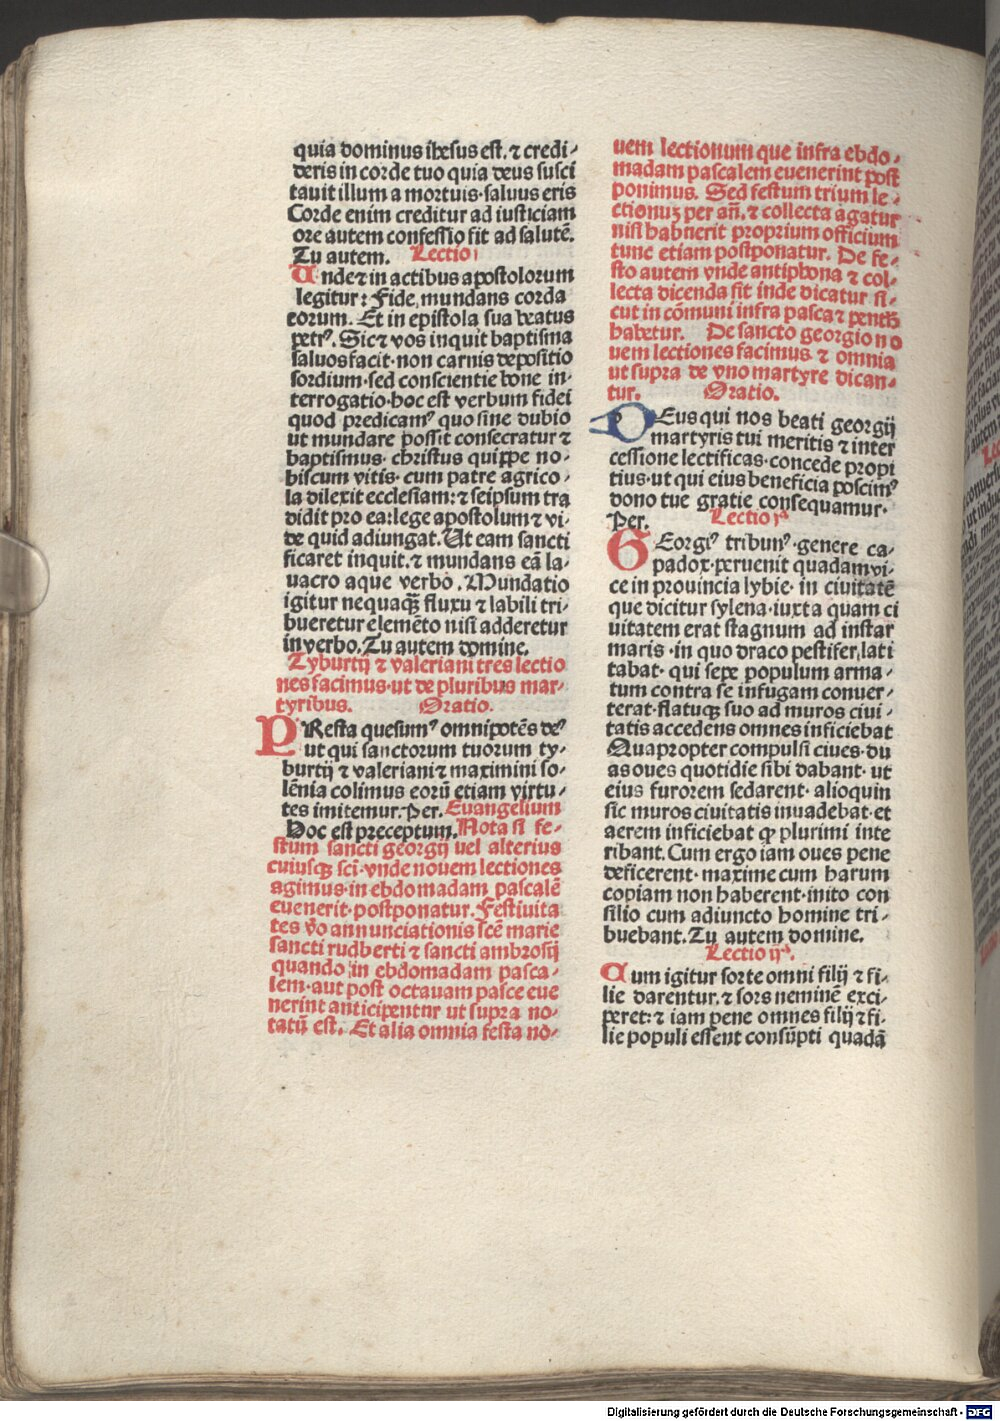 quia dominus ihesus est. ⁊ credi-
deris in corde tuo quia deus susci
tauit illum a mortuis·saluus eris
Corde enim creditur ad iusticiam
ore autem confessio fit ad salutē.
Tu autem. Lectio
Unde ⁊ in actibus apostolorum
legitur: Fide mundans corda
eorum. Et in epistola sua beatus
petrꝰ. Sic ⁊ vos inquit baptisma
saluos facit·non carnis depositio
sordium·sed conscientie bone in-
terrogatio·hoc est verbum fidei
quod predicamꝰ quo sine dubio
ut mundare possit consecratur ⁊
baptismus· christus quippe no-
biscum vitis· cum patre agrico-
la dilexit ecclesiam: ⁊ seipsum tra
didit pro ea: lege apostolum ⁊ vi-
de quid adiungat. Ut eam sancti
ficaret inquit. ⁊ mundans eā la-
uacro aque verbo. Mundatio
igitur nequaqȝ fluxu ⁊ labili tri-
bueretur elemēto nisi adderetur
in verbo. Tu autem domine.
Tyburtij ⁊ valeriani tres lectio
nes facimus·ut de pluribus mar-
tyribus. Oratio.
PResta quesumꝰ omnipotēs deꝰ
ut qui sanctorum tuorum ty-
burtij ⁊ valeriani ⁊ maximini so-
lēnia colimus eorū etiam virtu-
tes imitemur. Per. Euangelium
Hoc est preceptum. Nota si fe-
stum sancti georgij uel alterius
cuiusqȝ sci·vnde nouem lectiones
agimus·in ebdomadam pascalē
euenerit·postponatur. Festiuita
tes v̄o annunciationis scē marie
sancti rudberti ⁊ sancti ambrosij
quando in ebdomadam pasca-
lem·aut post octauam pasce eue
nerint anticipentur ut supra no-
tatū est. Et alia omnia festa no-
uem lectionum que infra ebdo-
madam pascalem euenerint post
ponimus. Sed festum trium le-
ctionuȝ per an̄. ⁊ collecta agatur
nisi habuerit proprium officium
tunc etiam postponatur. De fe-
sto autem vnde antiphona ⁊ col-
lecta dicenda sit inde dicatur si-
cut in cōmuni infra pasca ⁊ penth
habetur. De sancto georgio no
uem lectiones facimus ⁊ omnia
ut supra de vno martyre dican-
tur. Oratio.
DEus qui nos beati georgij
martyris tui meritis ⁊ inter
cessione lectificas·concede propi
tius·ut qui eius beneficia poscimꝰ
dono tue gratie consequamur.
Per. Lectio jᵃ
GEorgiꝰ tribunꝰ·genere ca-
padox·peruenit quadam vi-
ce in prouincia lybie· in ciuitatē
que dicitur sylena·iuxta quam ci
uitatem erat stagnum ad instar
maris·in quo draco pestifer lati
tabat· qui sepe populum arma-
tum contra se in fugam conuer-
terat·flatuqȝ suo ad muros ciui-
tatis accedens omnes inficiebat
Quapropter compulsi ciues·du
as oues quotidie sibi dabant· ut
eius furorem sedarent· alioquin
sic muros ciuitatis inuadebat·et
aerem inficiebat qƺ plurimi inte
ribant. Cum ergo iam oues pene
deficerent·maxime cum harum
copiam non haberent·inito con
silio cum adiuncto homine tri-
buebant. Tu autem domine.
Lectio ijᵃ.
Cum igitur sorte omni filij ⁊ fi-
lie darentur. ⁊ sors neminē exci-
peret: ⁊ iam pene omnes filij ⁊ fi-
lie populi essent consūpti quadā
Digitalisierung gefördert durch die Deutsche Forschungsgemeinschaft - DFG